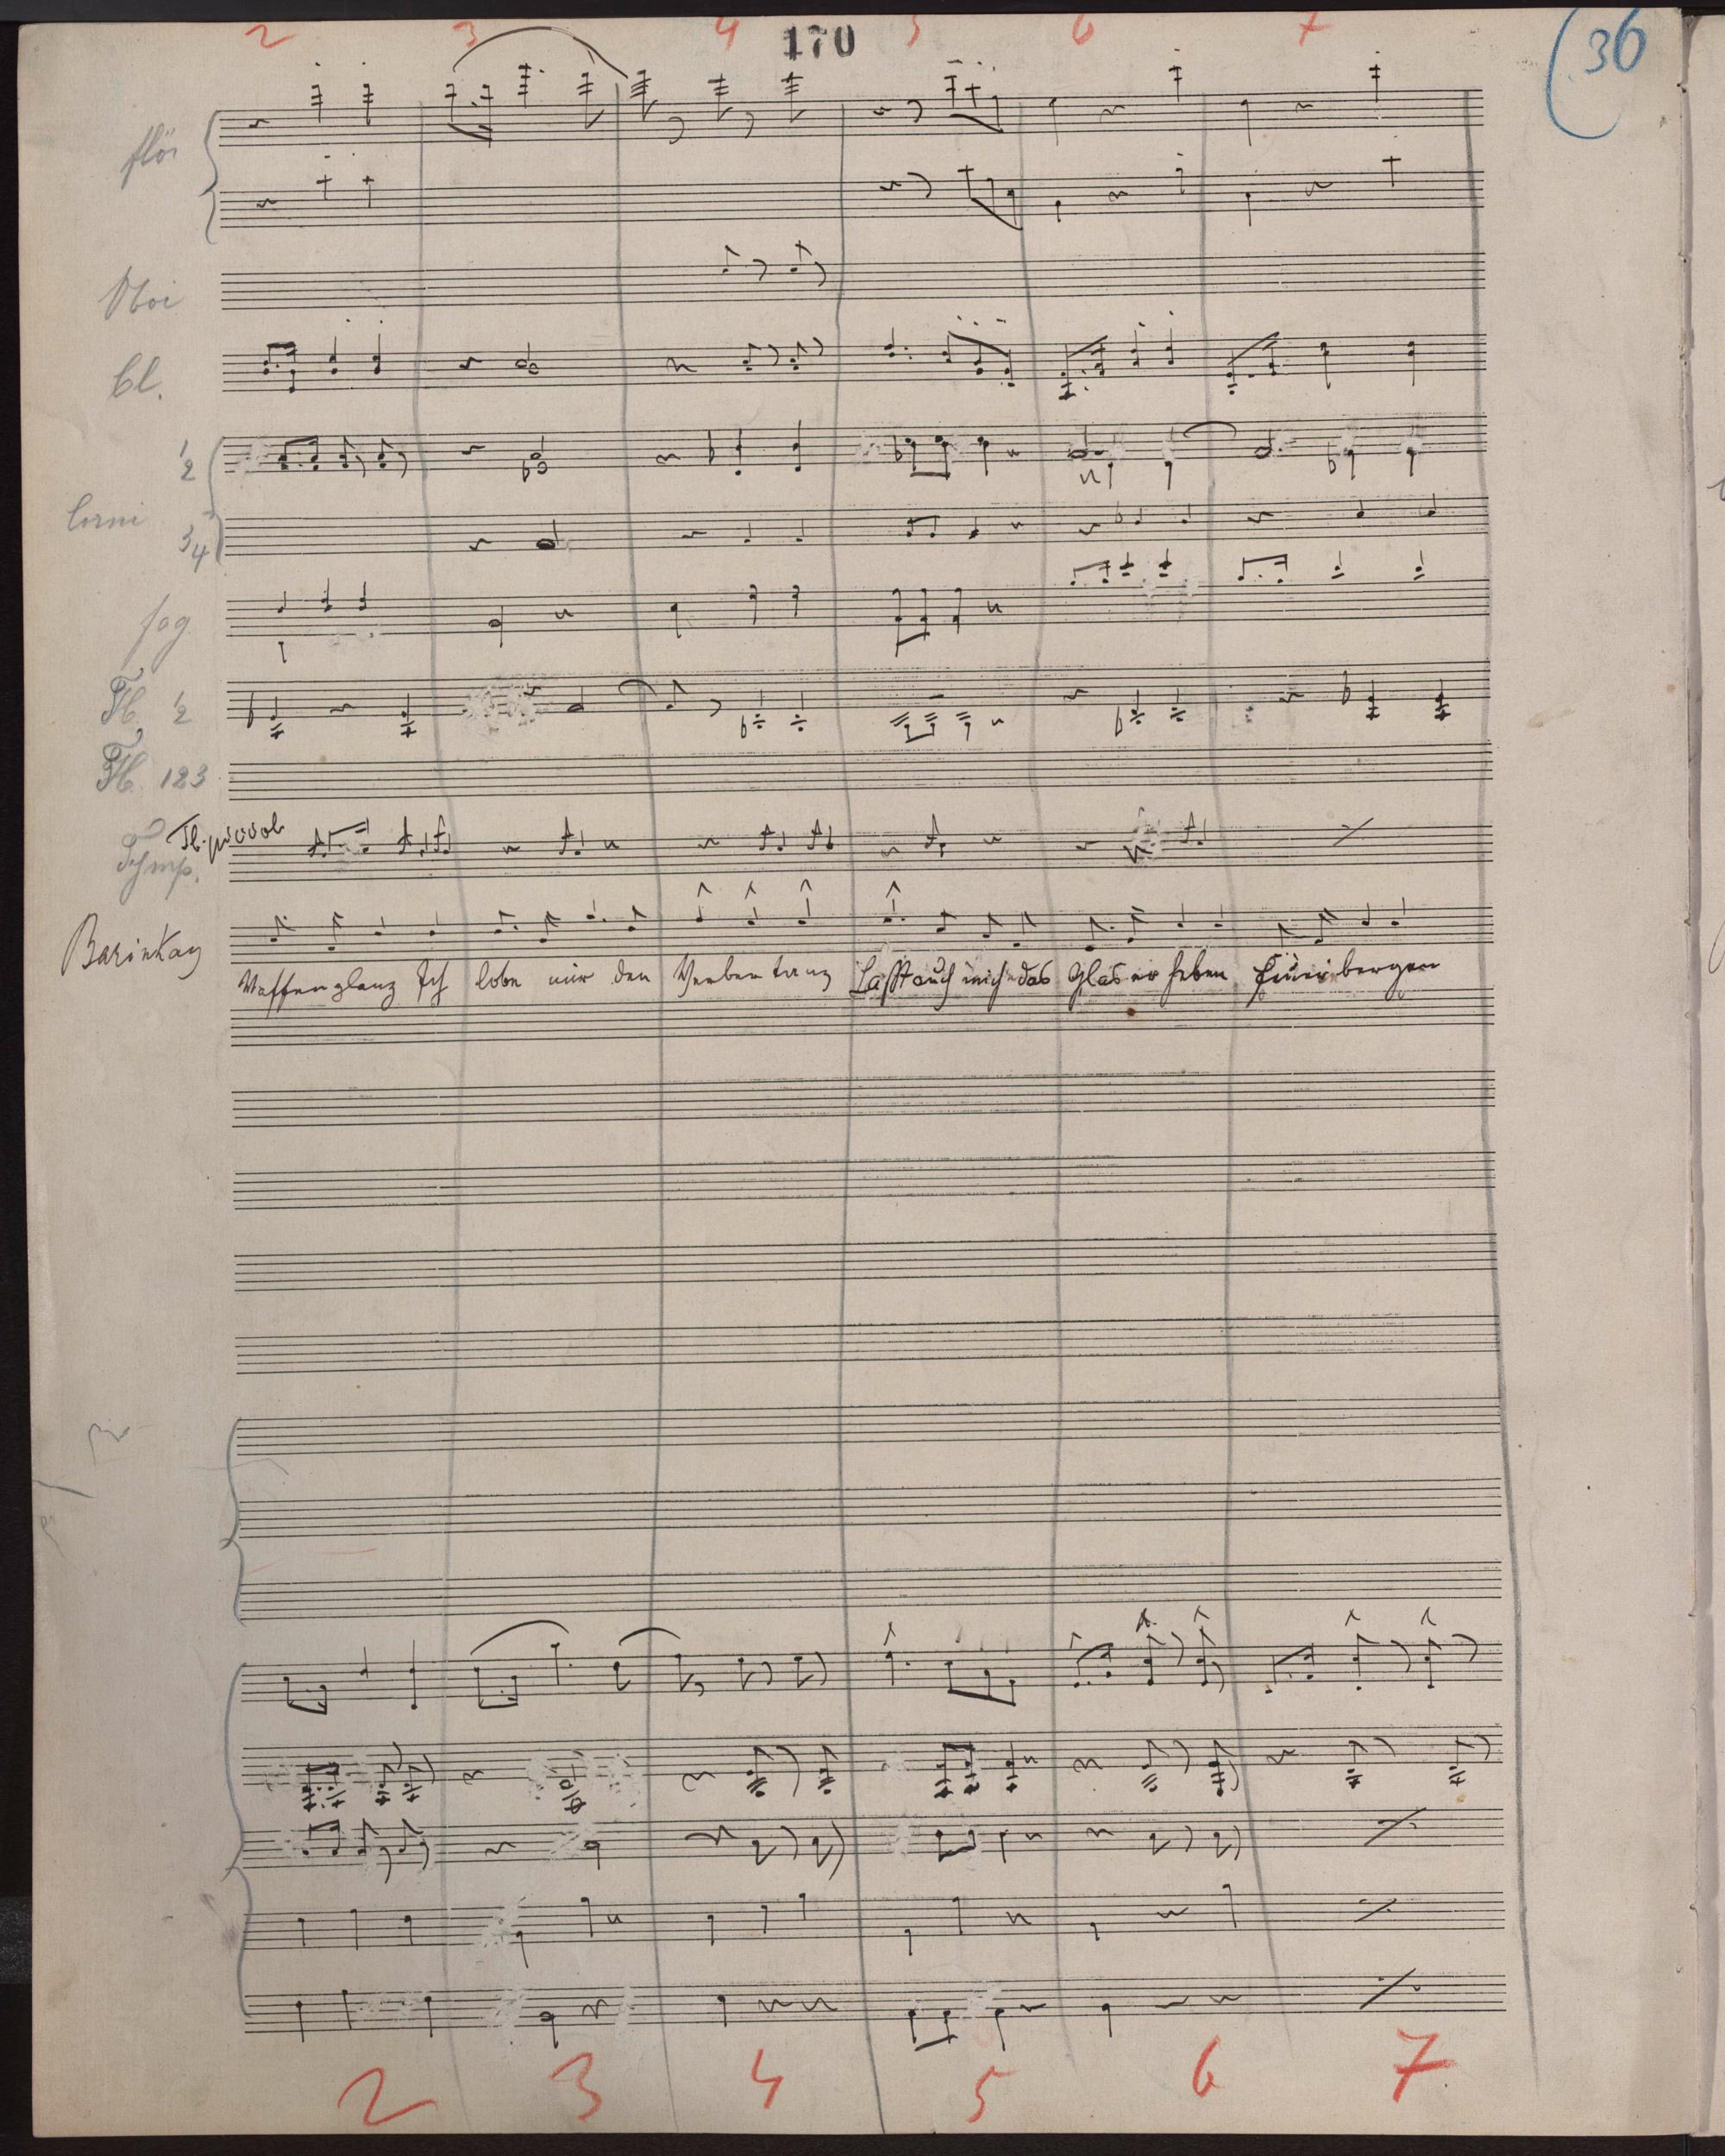 2 3 4 170 5 6 7
(36
flöi
Oboi
Cl.
1/2
Corni
3/4
fag
Tb. 1/2
Tb. 123
Tb. piccol
Tymp.
Barinkay
Waffenglanz Ich lobe mir den Laßt auch mich das Glas erheben
2 3 4 5 6 7